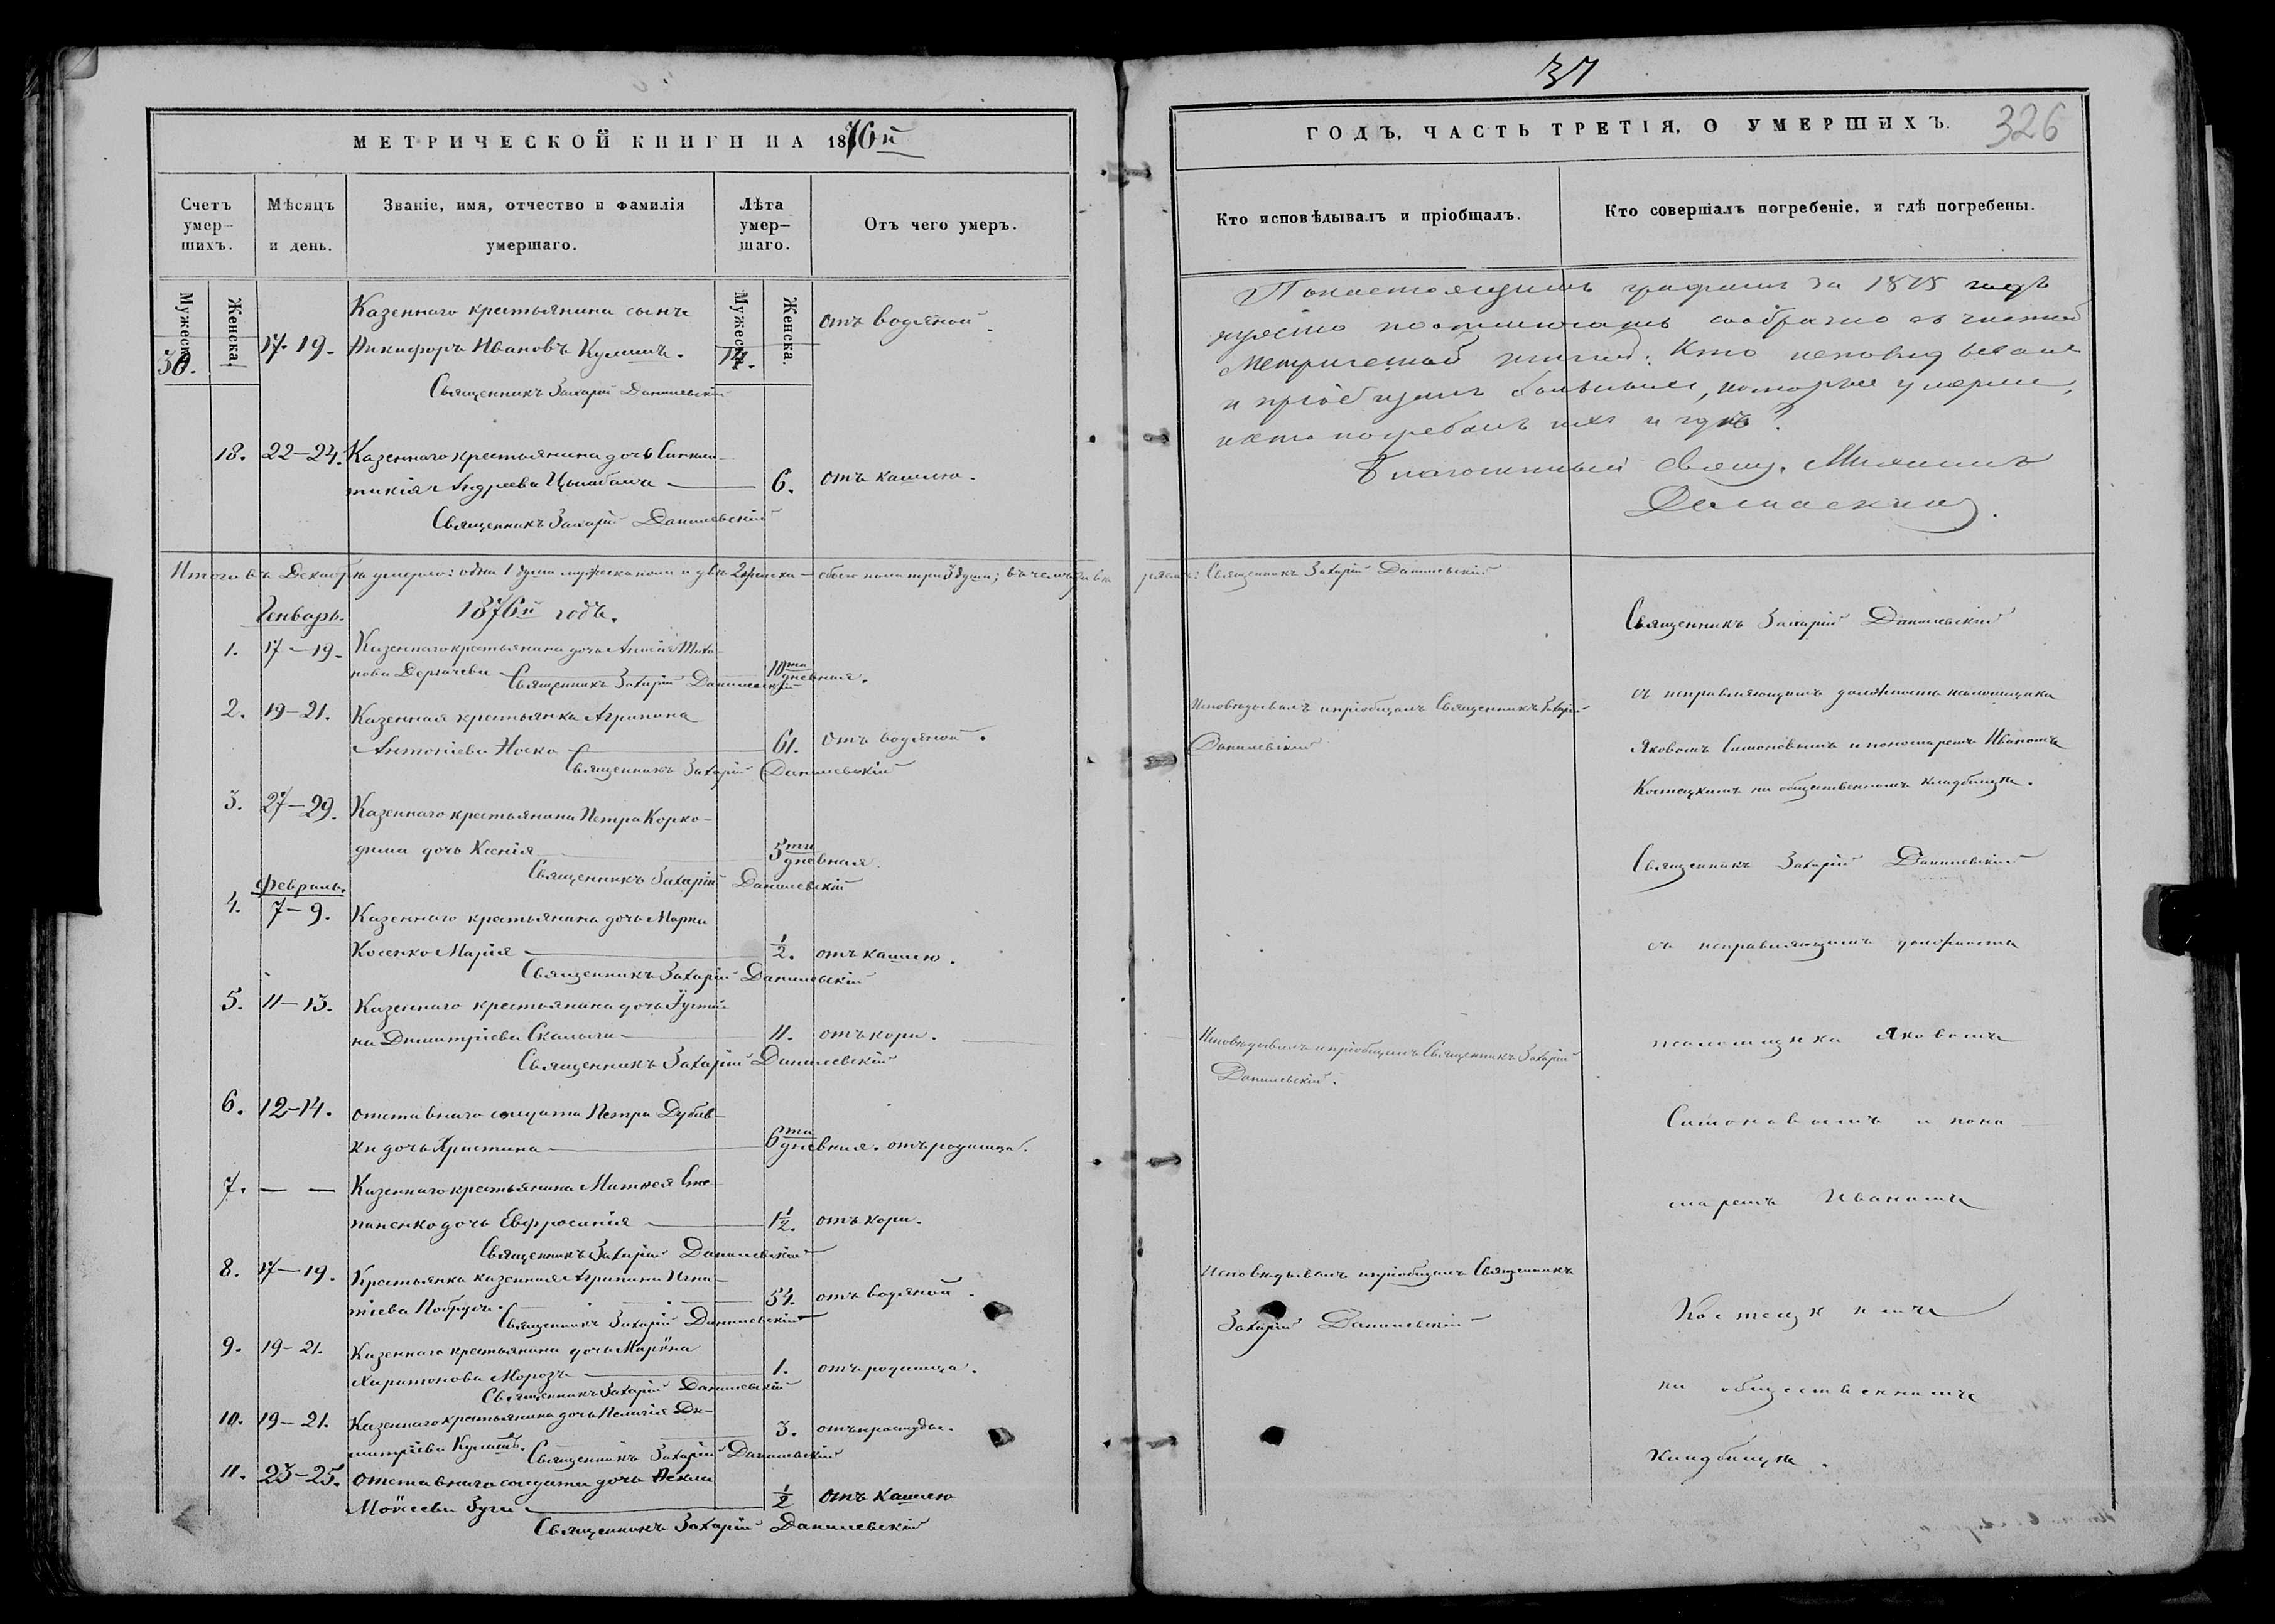 МЕТРИЧЕСКОЙ КНИГИ НА 1876й
Счетъ умер-шихъ.
Мѣсяцъ и день.
Званіе, имя, отчество и фамилія умершаго.
Лѣта умер-шаго.
Отъ чего умеръ.
Мужеска.
Женска.
Мужеска.
Женска.
Казеннаго крестьянина сынъ
30. 17-19. Никифоръ Ивановъ Кулишъ. 14. отъ водяной.
Священникъ Захарій Данилевскій
18. 22-24. Казеннаго крестьянина дочь Синкли-
тикія Андреева Цымбалъ 6. отъ кашлю.
Священникъ Захарій Данилевскій
Итого въ Декабрѣ умерло: одна 1 душа мужеска пола и двѣ 2 женска - обоего пола три 3 души;
Январь. 1876й годъ.
1. 17-19. Казеннаго крестьянина дочь Анисія Тихо-
нова Дергачева 10ти дневная.
Священникъ Захарій Данилевскій
2. 19-21. Казенная крестьянка Агрипина
Антоніева Носко 61. отъ водяной.
Священникъ Захарій Данилевскій
3. 27-29. Казеннаго крестьянина Петра Корко-
дима дочь Ксенія 5ти дневная.
Священникъ Захарій Данилевскій
Февраль.
4. 7-9. Казеннаго крестьянина дочь Марка
Косенко Марія 1/2. отъ кашлю.
Священникъ Захарій Данилевскій
5. 11-13. Казеннаго крестьянина дочь Іусти-
на Димитріева Скалыга 11. отъ кори.
Священникъ Захарій Данилевскій
6. 12-14. отставнаго солдата Петра Дубов-
ки дочь Христина 6ти дневная. отъ родимца.
7. — — Казеннаго крестьянина Матѳея Сте-
паненко дочь Евфросинія 1 1/2. отъ кори.
Священникъ Захарій Данилевскій
8. 17-19. Крестьянка казенная Агрипина Игна-
тіева 54. отъ водяной.
Священникъ Захарій Данилевскій
9. 19-21. Казеннаго крестьянина дочь Марина
Харитонова Морозъ 1. отъ родимца.
Священникъ Захарій Данилевскій
10. 19-21. Казеннаго крестьянина дочь Пелагія Ди-
митріева Кулишъ. 3. отъ простуды.
Священникъ Захарій Данилевскій
11. 23-25. отставнаго солдата дочь
Моисеева Зуга 1/2 отъ кашлю
Священникъ Захарій Данилевскій
37
326
ГОДЪ, ЧАСТЬ ТРЕТІЯ, О УМЕРШИХЪ.
Кто исповѣдывалъ и пріобщалъ.
Кто совершалъ погребеніе, и гдѣ погребены.
По настоящимъ графамъ за 1875 годъ
сообразно съ
Метрической книгой: Кто исповѣдывалъ
и пріобщалъ больныхъ, которые умерли,
и кто погребалъ ихъ и гдѣ?
Благочинный Свящ. Михаилъ
Дамаскинъ.
Священникъ Захарій Данилевскій
Священникъ Захарій Данилевскій
Исповѣдывалъ и пріобщалъ Священникъ Захарій
Данилевскій
съ исправляющимъ должность псаломщика
Яковомъ Симоновымъ и пономаремъ Иваномъ
Костецкимъ на общественномъ кладбищѣ.
Священникъ Захарій Данилевскій
съ исправляющимъ должность
Исповѣдывалъ и пріобщалъ Священникъ Захарій
Данилевскій.
псаломщика Яковомъ
Симоновымъ и поно-
маремъ Иваномъ
Исповѣдывалъ и пріобщалъ Священникъ
Захарій Данилевскій
Костецкимъ
на общественномъ
кладбищѣ.